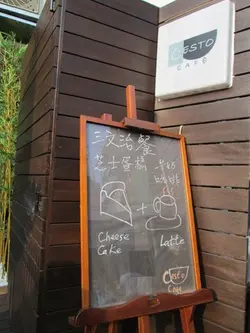 CESTO
CAFE
三文治餐
芝士蛋糕
+
Cheese
Cake
Latte
Cesto
Cafe